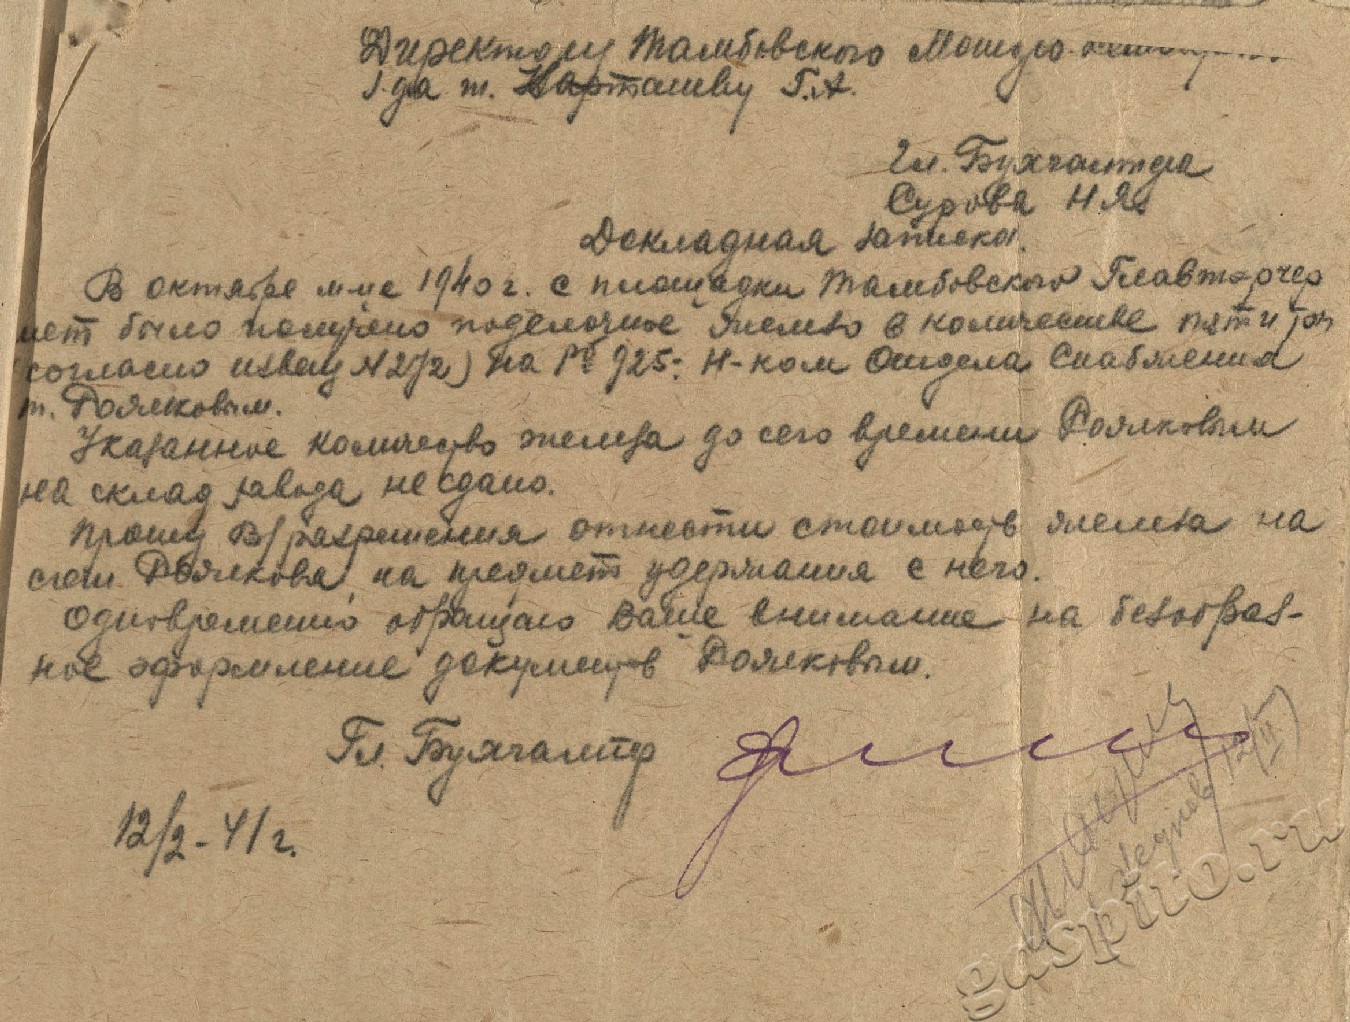 Директору Тамбовского
з-да т. Карташеву Г.А.
Гл. Бухгалтера
Сурова Н.Я.
Докладная записка.
В октябре м-це 1940 г. с площадки Тамбовского Главвторчер
мет было получено поделочное железо в количестве пяти тон
согласно извещ N 272) на 725- Н-ком Отдела Снабжения
т. Роялковым.
Указанное количество железа до сего времени Роялковым
на склад завода не сдано.
Прошу В/разрешения отнести стоимость железа на
счет Роялкова, на предмет удержания с него.
Одновременно обращаю Ваше внимание на безобраз-
ное оформление документов Роялковым.
Гл. Бухгалтер
12/2-41 г.
gaspito.ru